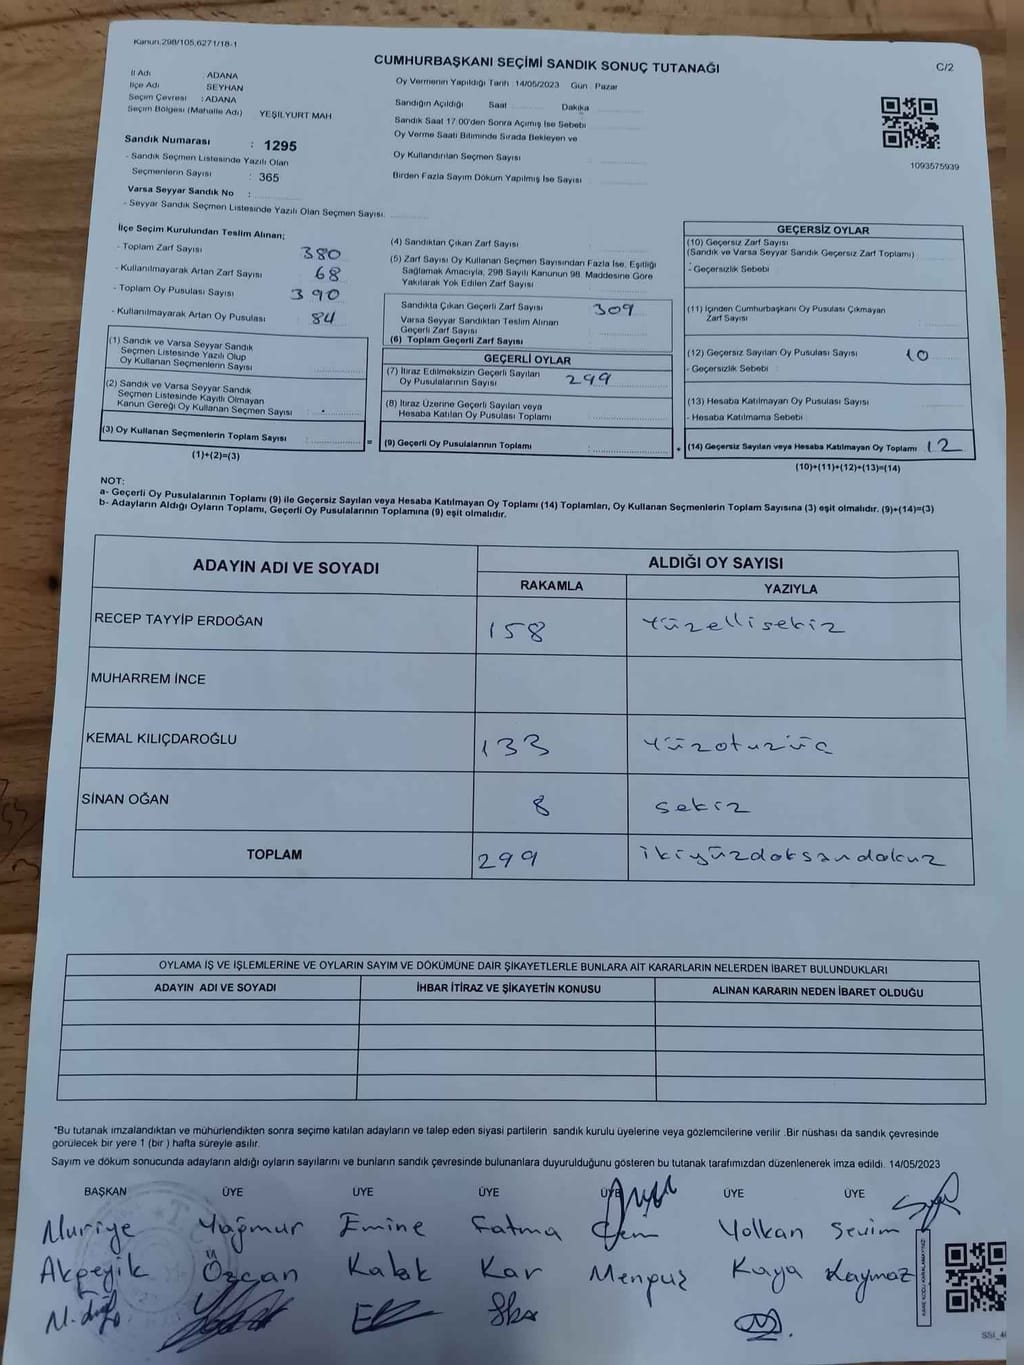 Kanun.298/105,6271/18-1
CUMHURBAŞKANI SEÇİMİ SANDIK SONUÇ TUTANAĞI
C/2
İl Adı : ADANA
İlçe Adı SEYHAN
Seçim Çevresi : ADANA
Seçim Bölgesi (Mahalle Adı) YEŞİLYURT MAH
Oy Vermenin Yapıldığı Tarih :14/05/2023 Gün : Pazar
Sandığın Açıldığı Saat Dakika
Sandık Saat 17:00'den Sonra Açımış İse Sebebi
Oy Verme Saati Bitiminde Sırada Bekleyen ve
Oy Kullandırılan Seçmen Sayısı
Birden Fazla Sayım Döküm Yapılmış İse Sayısı
1093575939
Sandık Numarası : 1295
- Sandık Seçmen Listesinde Yazılı Olan
Seçmenlerin Sayısı : 365
Varsa Seyyar Sandık No :
- Seyyar Sandık Seçmen Listesinde Yazılı Olan Seçmen Sayısı.
İlçe Seçim Kurulundan Teslim Alınan;
- Toplam Zarf Sayısı 380
- Kullanılmayarak Artan Zarf Sayısı 68
- Toplam Oy Pusulası Sayısı 390
- Kullanılmayarak Artan Oy Pusulası 84
(1) Sandık ve Varsa Seyyar Sandık
Seçmen Listesinde Yazılı Olup
Oy Kullanan Seçmenlerin Sayısı
(2) Sandık ve Varsa Seyyar Sandık
Seçmen Listesinde Kayıtlı Olmayan
Kanun Gereği Oy Kullanan Seçmen Sayısı :
(3) Oy Kullanan Seçmenlerin Toplam Sayısı :
(1)+(2)=(3)
(4) Sandıktan Çıkan Zarf Sayısı
(5) Zarf Sayısı Oy Kullanan Seçmen Sayısından Fazla İse, Eşitliği
Sağlamak Amacıyla, 298 Sayılı Kanunun 98. Maddesine Göre
Yakılarak Yok Edilen Zarf Sayısı
Sandıkta Çıkan Geçerli Zarf Sayısı 309
Varsa Seyyar Sandıktan Teslim Alınan
Geçerli Zarf Sayısı
(6) Toplam Geçerli Zarf Sayısı
GEÇERLİ OYLAR
(7) İtiraz Edilmeksizin Geçerli Sayılan
Oy Pusulalarının Sayısı 299
(8) İtiraz Üzerine Geçerli Sayılan veya
Hesaba Katılan Oy Pusulası Toplamı
= (9) Geçerli Oy Pusulalarının Toplamı :
GEÇERSİZ OYLAR
(10) Geçersiz Zarf Sayısı
(Sandık ve Varsa Seyyar Sandık Geçersiz Zarf Toplamı)
- Geçersizlik Sebebi
(11) İçinden Cumhurbaşkanı Oy Pusulası Çıkmayan
Zarf Sayısı
(12) Geçersiz Sayılan Oy Pusulası Sayısı 10
- Geçersizlik Sebebi
(13) Hesaba Katılmayan Oy Pusulası Sayısı
- Hesaba Katılmama Sebebi
+ (14) Geçersiz Sayılan veya Hesaba Katılmayan Oy Toplamı 12
(10)+(11)+(12)+(13)=(14)
NOT:
a- Geçerli Oy Pusulalarının Toplamı (9) ile Geçersiz Sayılan veya Hesaba Katılmayan Oy Toplamı (14) Toplamları, Oy Kullanan Seçmenlerin Toplam Sayısına (3) eşit olmalıdır. (9)+(14)=(3)
b- Adayların Aldığı Oyların Toplamı, Geçerli Oy Pusulalarının Toplamına (9) eşit olmalıdır.
ADAYIN ADI VE SOYADI
ALDIĞI OY SAYISI
RAKAMLA YAZIYLA
RECEP TAYYİP ERDOĞAN 158 Yüzellisekiz
MUHARREM İNCE
KEMAL KILIÇDAROĞLU 133 Yüzotuzüç
SİNAN OĞAN 8 sekiz
TOPLAM 299 ikiyüzdoksandokuz
OYLAMA İŞ VE İŞLEMLERİNE VE OYLARIN SAYIM VE DÖKÜMÜNE DAİR ŞİKAYETLERLE BUNLARA AİT KARARLARIN NELERDEN İBARET BULUNDUKLARI
ADAYIN ADI VE SOYADI İHBAR İTİRAZ VE ŞİKAYETİN KONUSU ALINAN KARARIN NEDEN İBARET OLDUĞU
*Bu tutanak imzalandıktan ve mühürlendikten sonra seçime katılan adayların ve talep eden siyasi partilerin sandık kurulu üyelerine veya gözlemcilerine verilir .Bir nüshası da sandık çevresinde
görülecek bir yere 1 (bir ) hafta süreyle asılır.
Sayım ve döküm sonucunda adayların aldığı oyların sayılarını ve bunların sandık çevresinde bulunanlara duyurulduğunu gösteren bu tutanak tarafımızdan düzenlenerek imza edildi. 14/05/2023
BAŞKAN ÜYE ÜYE ÜYE ÜYE ÜYE ÜYE
Nuriye Yağmur Emine Fatma Cem Volkan Sevim
Akpeyik Özcan Kalak Kar Menpuz Kaya Kaymaz
KARE KODU KARALAMAYINIZ